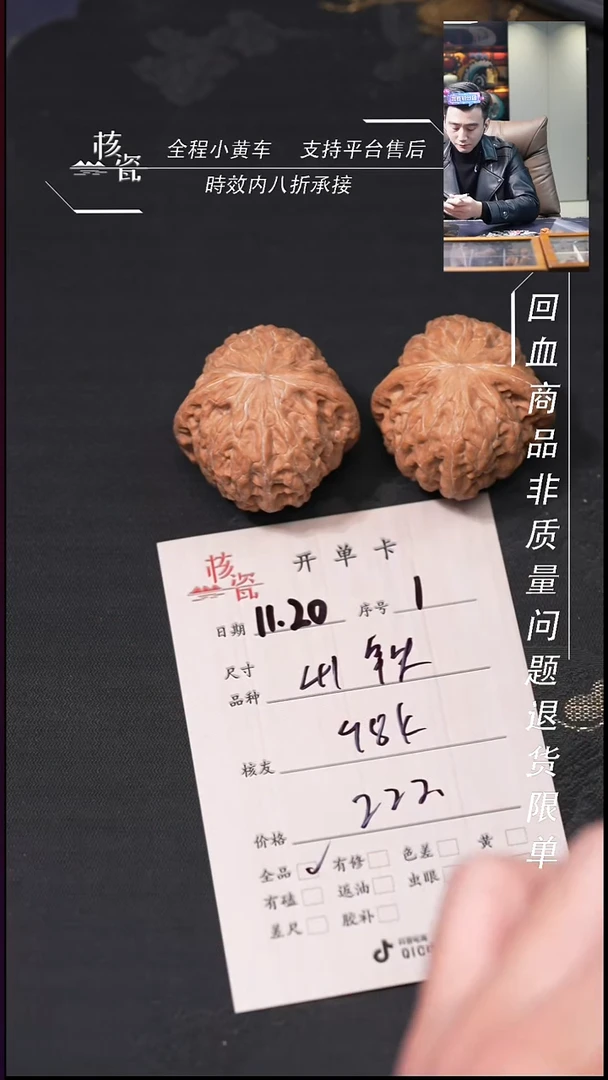 核瓷
全程小黄车 支持平台售后
時效内八折承接
回血商品非质量问题退货限单
核瓷
开单卡
日期 11.20 序号 1
尺寸
品种 41
核友 98k
价格 222
全品 ✓ 有修 色差 黄
有磕 返油 虫眼
差尺 胶补